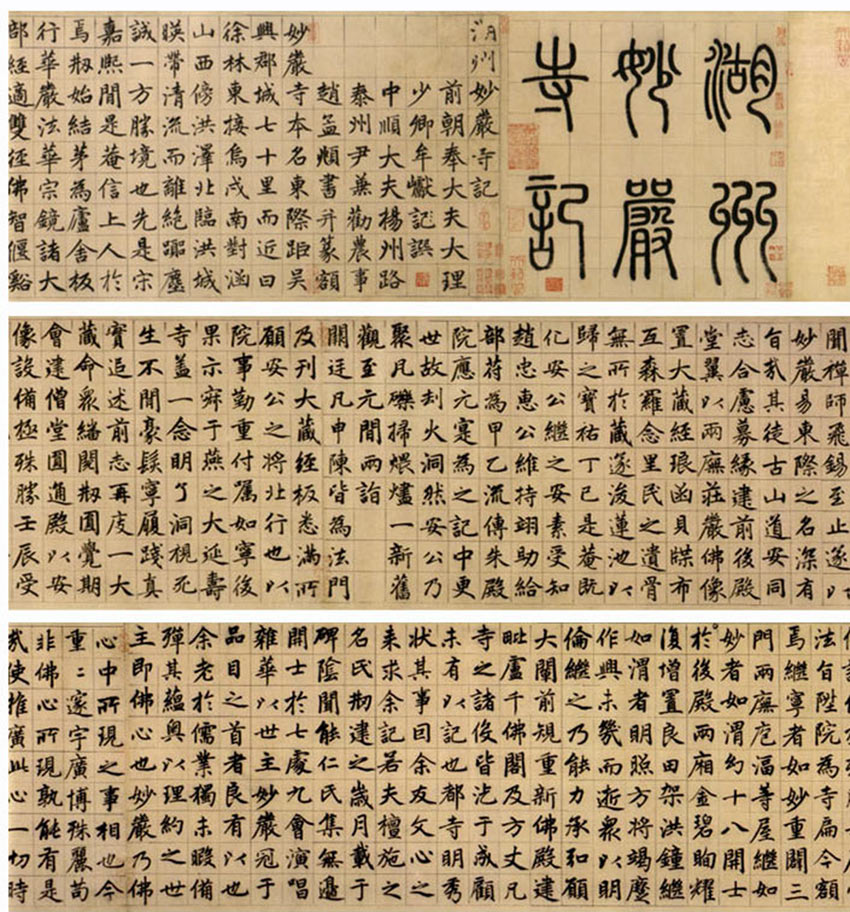 湖州
妙嚴
寺記
湖州妙嚴寺記
前朝奉大夫大理
少卿牟巘記譔
中順大夫楊州路
泰州尹兼勸農事
趙孟頫書并篆額
妙嚴寺本名東際距吳
興郡城七十里而近曰
徐林東接烏戍南對涵
山西傍洪澤北臨洪城
暎帶清流而離絶囂塵
誠一方勝境也先是宋
嘉熙間是菴信上人於
焉刱始結茅為廬舍板
行華嚴法華宗鏡諸大
部經適雙徑佛智偃谿
聞禪師飛錫至止遂以
妙嚴易東際之名深有
旨哉其徒古山道安同
志合慮募緣建前後殿
堂翼以兩廡莊嚴佛像
置大藏經琅函貝牒布
互森羅念里民之遺骨
無所於藏遂浚蓮池以
歸之寶祐丁巳是菴既
化安公繼之安素受知
趙忠惠公維持翊助給
部苻為甲乙流傳朱殿
院應元寔為之記中更
世故刦火洞然安公乃
聚凡礫掃煨燼一新舊
觀至元間兩詣
闕廷凡申陳皆為法門
及刊大藏經板悉滿所
願安公之將北行也以
院事勤重付囑如寧後
果示寂于燕之大延壽
寺盖一念明了洞視死
生不間豪髮寧履踐真
實追述前志再度一大
藏命衆繙閱刱圓覺期
會建僧堂圓通殿以安
像設備極殊勝壬辰受
法旨陞院為寺扁今額
焉繼寧者如妙重闢三
門兩廡庖湢等屋繼如
妙者如渭約十八開士
於後殿兩廂金碧眴耀
復增置良田架洪鐘繼
如渭者明照方將竭麼
作興未幾而逝衆以明
倫繼之乃能力承和願
大闡前規重新佛殿建
毗盧千佛閣及方丈凡
寺之諸役皆汔于成顧
未有以記也都寺明秀
狀其事囘余友文心之
来求余記若夫檀施之
名氏刱建之歲月載于
碑陰聞能仁氏集無邊
開士於七處九會演唱
雜華以世主妙嚴冠于
品目之首者良有以也
余老於儒業獨未暇備
殫其蘊奥以理約之世
主即佛心也妙嚴乃佛
心中所現之事相也今
重〻邃宇廣博殊麗苟
非佛心所現孰能有是
哉使推廣此心一切時